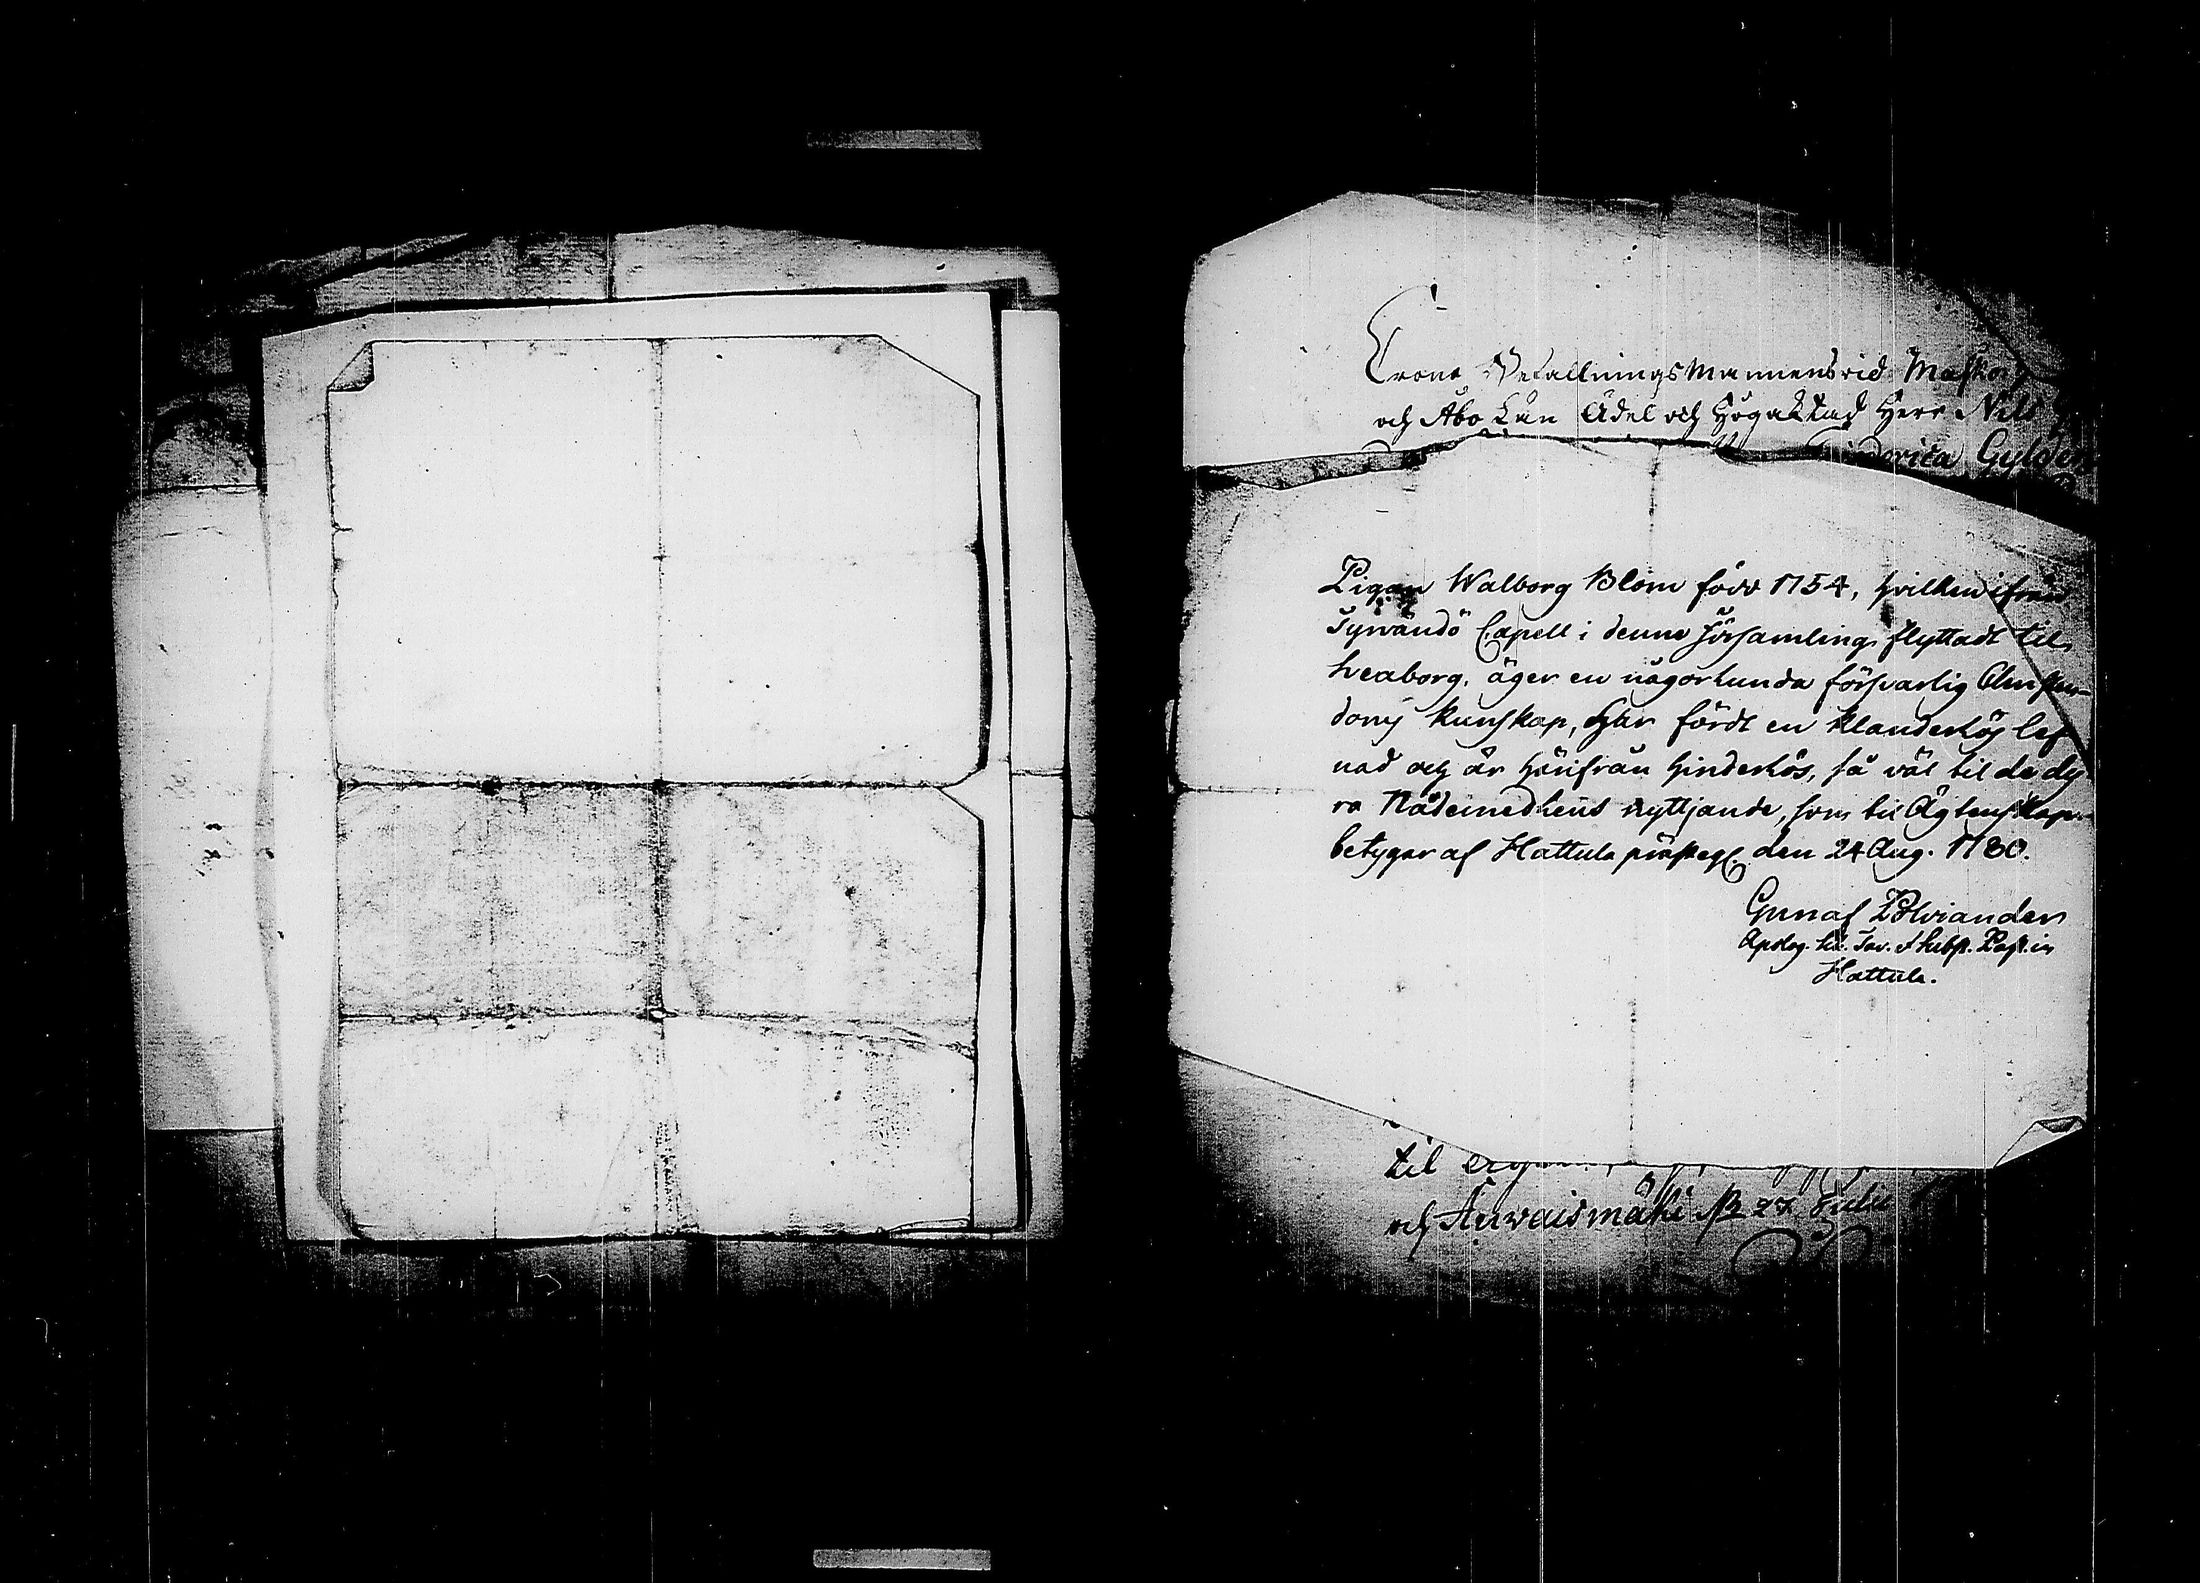 Crono Befallningsmannens vid Masko
och Åbo Län Ädel och Högaktad Herr Nils
Friderica Gylden
Pigan Walborg Blom född 1754, hvilken ifrån
Tyrvändö Capell i denne Församling flyttadt til
Sveaborg, äger en någorlunda försvarlig Christen-
doms kunskap, har fördt en klanderlös lef
nad och är härifrån hinderlös, så väl til de dy
ra Nådemedlens nyttjande, som til Ägtenskap
betygar af Hattula prästeg. den 24 Aug. 1780.
Gustaf Polviander
Past. in
Hattula.
til
och Anvaismäki d. 27 Julii